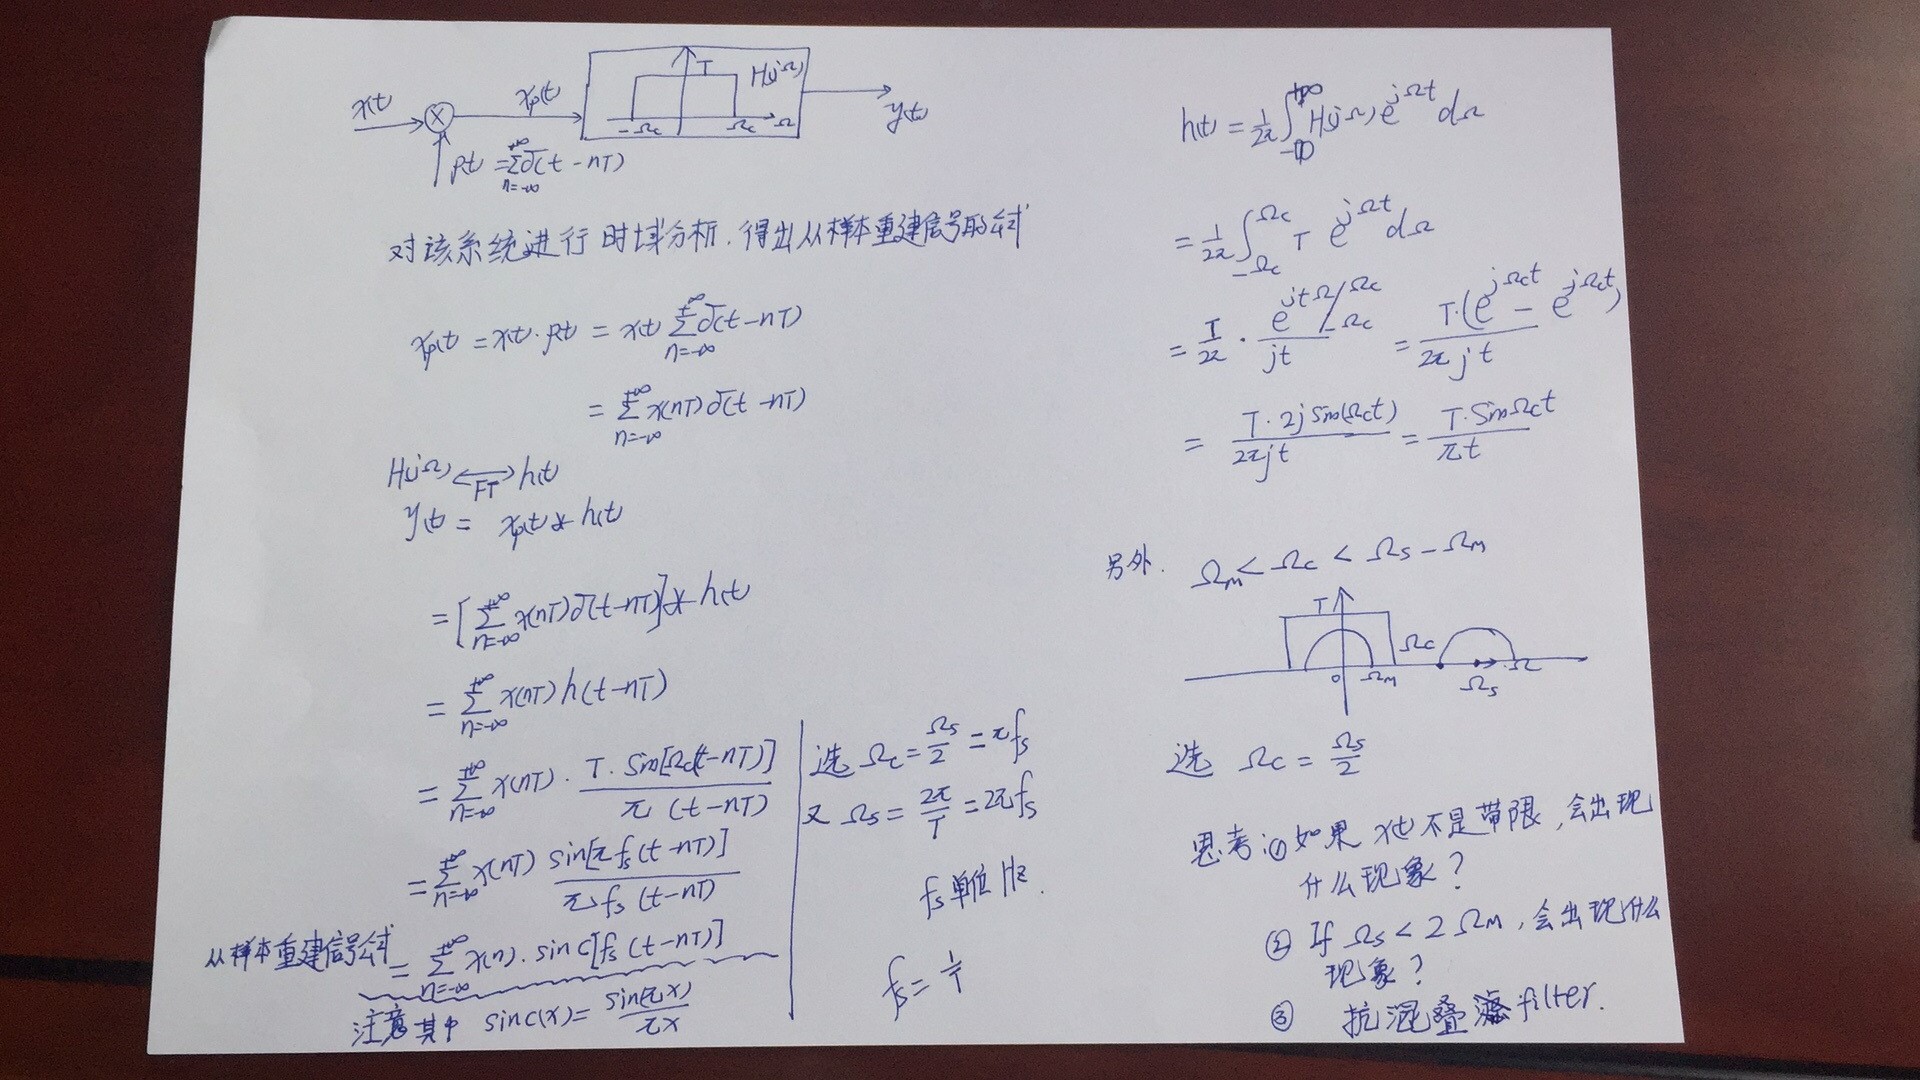 x(t)
xp(t)
T
H(jΩ)
-Ωc
Ωc
Ω
y(t)
p(t) = Σ_{n=-∞}^{+∞} δ(t - nT)
对该系统进行时域分析, 得出从样本重建信号的公式
xp(t) = x(t)·p(t) = x(t) Σ_{n=-∞}^{+∞} δ(t-nT)
= Σ_{n=-∞}^{+∞} x(nT) δ(t-nT)
H(jΩ) ⟷FT h(t)
y(t) = xp(t) * h(t)
= [Σ_{n=-∞}^{+∞} x(nT) δ(t-nT)] * h(t)
= Σ_{n=-∞}^{+∞} x(nT) h(t-nT)
= Σ_{n=-∞}^{+∞} x(nT) · T·Sin[Ωc(t-nT)] / π(t-nT)
= Σ_{n=-∞}^{+∞} x(nT) sin[πfs(t-nT)] / πfs(t-nT)
从样本重建信号公式 = Σ_{n=-∞}^{+∞} x(n)·sinc[fs(t-nT)]
注意其中 sinc(x) = sin(πx) / πx
选 Ωc = Ωs/2 = πfs
又 Ωs = 2π/T = 2πfs
fs单位Hz.
fs = 1/T
h(t) = 1/2π ∫_{-∞}^{+∞} H(jΩ) e^{jΩt} dΩ
= 1/2π ∫_{-Ωc}^{Ωc} T e^{jΩt} dΩ
= T/2π · e^{jtΩ}/_{-Ωc}^{Ωc} / jt = T·(e^{jΩct} - e^{jΩct}) / 2πjt
= T·2j sin(Ωct) / 2πjt = T·SinΩct / πt
另外. Ωm < Ωc < Ωs - Ωm
T
Ωc
0
Ωm
Ωs
Ω
选 Ωc = Ωs/2
思考: ① 如果 x(t) 不是带限, 会出现
什么现象?
② If Ωs < 2Ωm, 会出现什么
现象?
③ 抗混叠滤filter.